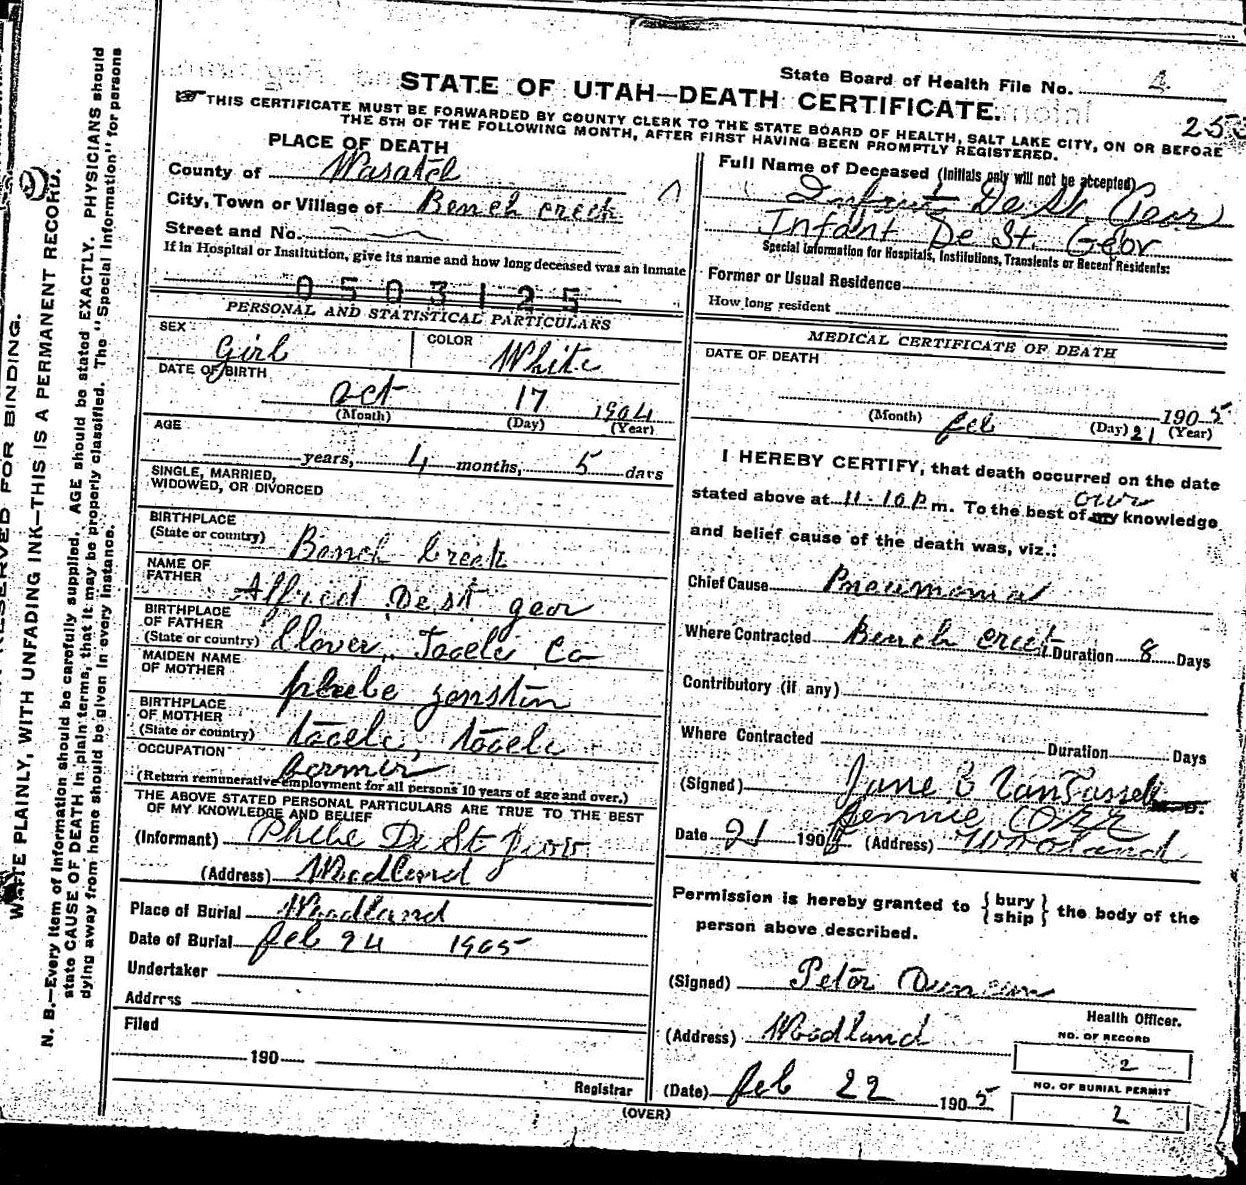 State Board of Health File No. 2
STATE OF UTAH—DEATH CERTIFICATE.
253
THIS CERTIFICATE MUST BE FORWARDED BY COUNTY CLERK TO THE STATE BOARD OF HEALTH, SALT LAKE CITY, ON OR BEFORE
THE 5TH OF THE FOLLOWING MONTH, AFTER FIRST HAVING BEEN PROMPTLY REGISTERED.
PLACE OF DEATH
County of Wasatch
City, Town or Village of Bench creek
Street and No.
If in Hospital or Institution, give its name and how long deceased was an inmate
0503125
PERSONAL AND STATISTICAL PARTICULARS
SEX Girl
COLOR White
DATE OF BIRTH
oct 17 1904
(Month) (Day) (Year)
AGE
years, 4 months, 5 days
SINGLE, MARRIED,
WIDOWED, OR DIVORCED
BIRTHPLACE
(State or country) Bench Creek
NAME OF
FATHER Alfred De St geor
BIRTHPLACE
OF FATHER
(State or country) Clover, Tooele Co
MAIDEN NAME
OF MOTHER phebe
BIRTHPLACE
OF MOTHER
(State or country) tooele, tooele
OCCUPATION
(Return remunerative employment for all persons 10 years of age and over.)
THE ABOVE STATED PERSONAL PARTICULARS ARE TRUE TO THE BEST
OF MY KNOWLEDGE AND BELIEF
(Informant) Phebe De St jeor
(Address) Woodland
Place of Burial Woodland
Date of Burial feb 24 1905
Undertaker
Address
Filed
190
Registrar
Full Name of Deceased (Initials only will not be accepted)
Infant De St. Geor
Infant De St. Geor
Special Information for Hospitals, Institutions, Transients or Recent Residents:
Former or Usual Residence
How long resident
MEDICAL CERTIFICATE OF DEATH
DATE OF DEATH
1905
(Month) feb (Day) 21 (Year)
I HEREBY CERTIFY, that death occurred on the date
stated above at 11-10 p m. To the best of my our knowledge
and belief cause of the death was, viz.:
Chief Cause Pneumonia
Where Contracted Bench creek Duration 8 Days
Contributory (if any)
Where Contracted Duration Days
(Signed) Jane B VanTassell
Jennie Orr
Date 21 190 (Address) Woodland
Permission is hereby granted to { bury ship } the body of the
person above described.
(Signed) Peter Duncan
Health Officer.
(Address) Woodland
NO. OF RECORD
2
(Date) feb 22 1905
NO. OF BURIAL PERMIT
2
(OVER)
RESERVED FOR BINDING.
WRITE PLAINLY, WITH UNFADING INK—THIS IS A PERMANENT RECORD.
N. B.—Every item of information should be carefully supplied. AGE should be stated EXACTLY. PHYSICIANS should
state CAUSE OF DEATH in plain terms, that it may be properly classified. The "Special Information" for persons
dying away from home should be given in every instance.